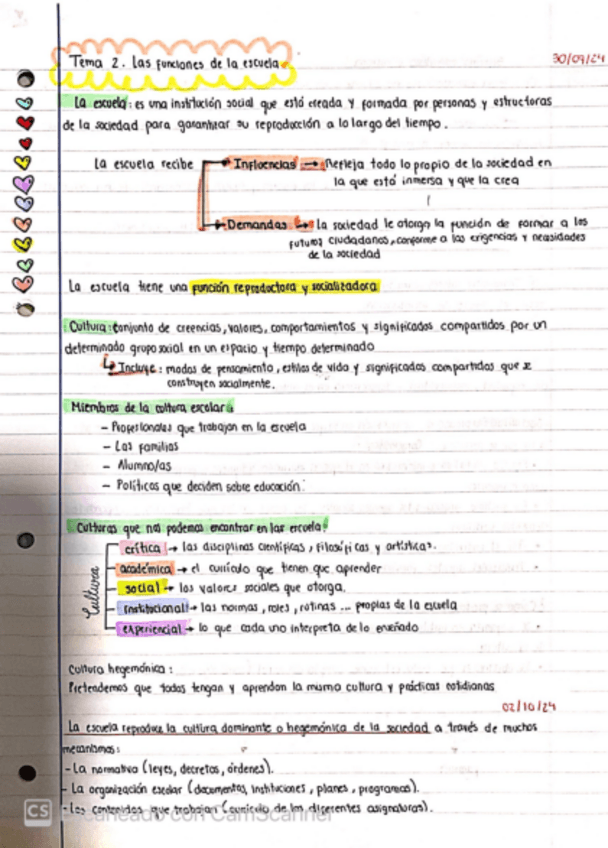 Tema 2. Las funciones de la escuela.
30/09/24
La escuela: es una institución social que está creada y formada por personas y estructuras
de la sociedad para garantizar su reproducción a lo largo del tiempo.
La escuela recibe → Influencias → Refleja todo lo propio de la sociedad en
la que está inmersa y que la crea
→ Demandas → La sociedad le otorga la función de formar a los
futuros ciudadanos, conforme a las exigencias y necesidades
de la sociedad
La escuela tiene una función reproductora y socializadora
Cultura: Conjunto de creencias, valores, comportamientos y significados compartidos por un
determinado grupo social en un espacio y tiempo determinado
↳ Incluye: modos de pensamiento, estilos de vida y significados compartidos que se
construyen socialmente.
Miembros de la cultura escolar:
- Profesionales que trabajan en la escuela
- Las familias
- Alumno/as
- Políticos que deciden sobre educación.
Culturas que nos podemos encontrar en las escuela:
Cultura
crítica → las disciplinas científicas, filosóficas y artísticas.
académica → el currículo que tienen que aprender
social → los valores sociales que otorga.
institucional → las normas, roles, rutinas ... propias de la escuela
experiencial → lo que cada uno interpreta de lo enseñado
Cultura hegemónica:
Pretendemos que todos tengan y aprendan la misma cultura y prácticas cotidianas
02/10/24
La escuela reproduce la cultura dominante o hegemónica de la sociedad a través de muchos
mecanismos:
- La normativa (leyes, decretos, órdenes).
- La organización escolar (documentos, instituciones, planes, programas).
- Los contenidos que trabajan (currículo de las diferentes asignaturas).
CS Escaneado con CamScanner